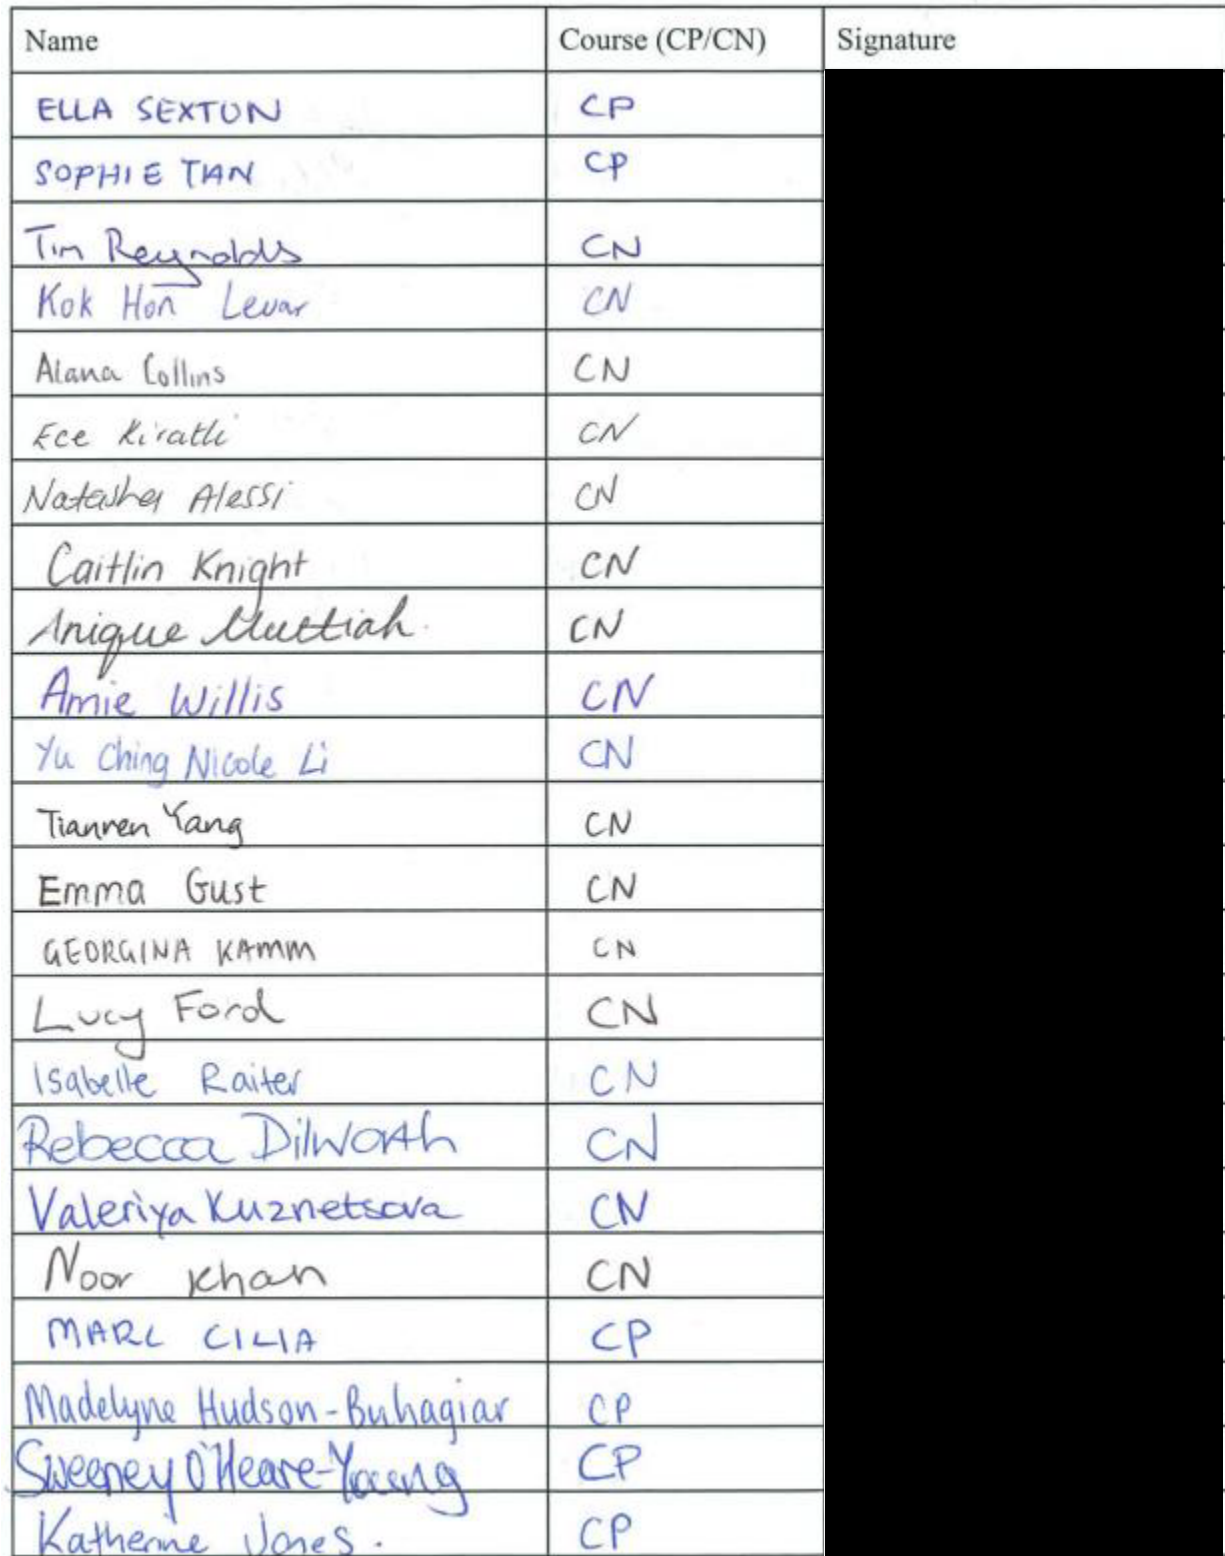 Name Course (CP/CN) Signature
ELLA SEXTON CP
SOPHIE TAN CP
Tim Reynolds CN
Kok Hon Levar CN
Alana Collins CN
Ece Kiratli CN
Natasha Alessi CN
Caitlin Knight CN
Anique Muttiah. CN
Amie Willis CN
Yu Ching Nicole Li CN
Tianren Yang CN
Emma Gust CN
GEORGINA KAMM CN
Lucy Ford CN
Isabelle Raiter CN
Rebecca Dilworth CN
Valeriya Kuznetsova CN
Noor Khan CN
MARC CILIA CP
Madelyne Hudson-Buhagiar CP
Sweeney O'Heare-Young CP
Katherine Jones. CP